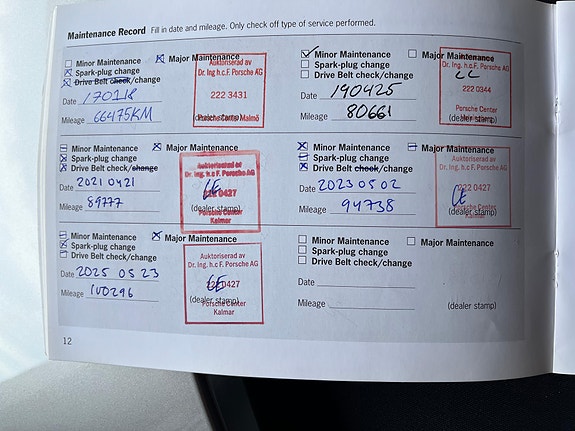 Maintenance Record Fill in date and mileage. Only check off type of service performed.
Minor Maintenance Major Maintenance
Spark-plug change
Drive Belt check/change
Date 170118
Mileage 66475KM (dealer stamp)
Auktoriserad av
Dr. Ing. h.c.F. Porsche AG
222 3431
Porsche Center Malmö
Minor Maintenance Major Maintenance
Spark-plug change
Drive Belt check/change
Date 190425
Mileage 80661 (dealer stamp)
Auktoriserad av
Dr. Ing. h.c.F. Porsche AG
222 0344
Porsche Center
Minor Maintenance Major Maintenance
Spark-plug change
Drive Belt check/change
Date 2021 0421
Mileage 89777 (dealer stamp)
Auktoriserad av
Dr. Ing. h.c F. Porsche AG
0427
Porsche Center
Kalmar
Minor Maintenance Major Maintenance
Spark-plug change
Drive Belt check/change
Date 2023 05 02
Mileage 94738 (dealer stamp)
Auktoriserad av
Dr. Ing. h.c F. Porsche AG
222 0427
Porsche Center
Kalmar
Minor Maintenance Major Maintenance
Spark-plug change
Drive Belt check/change
Date 2025 05 23
Mileage 100296 (dealer stamp)
Auktoriserad av
Dr. Ing. h.c F. Porsche AG
0427
Porsche Center
Kalmar
Minor Maintenance Major Maintenance
Spark-plug change
Drive Belt check/change
Date
Mileage (dealer stamp)
12